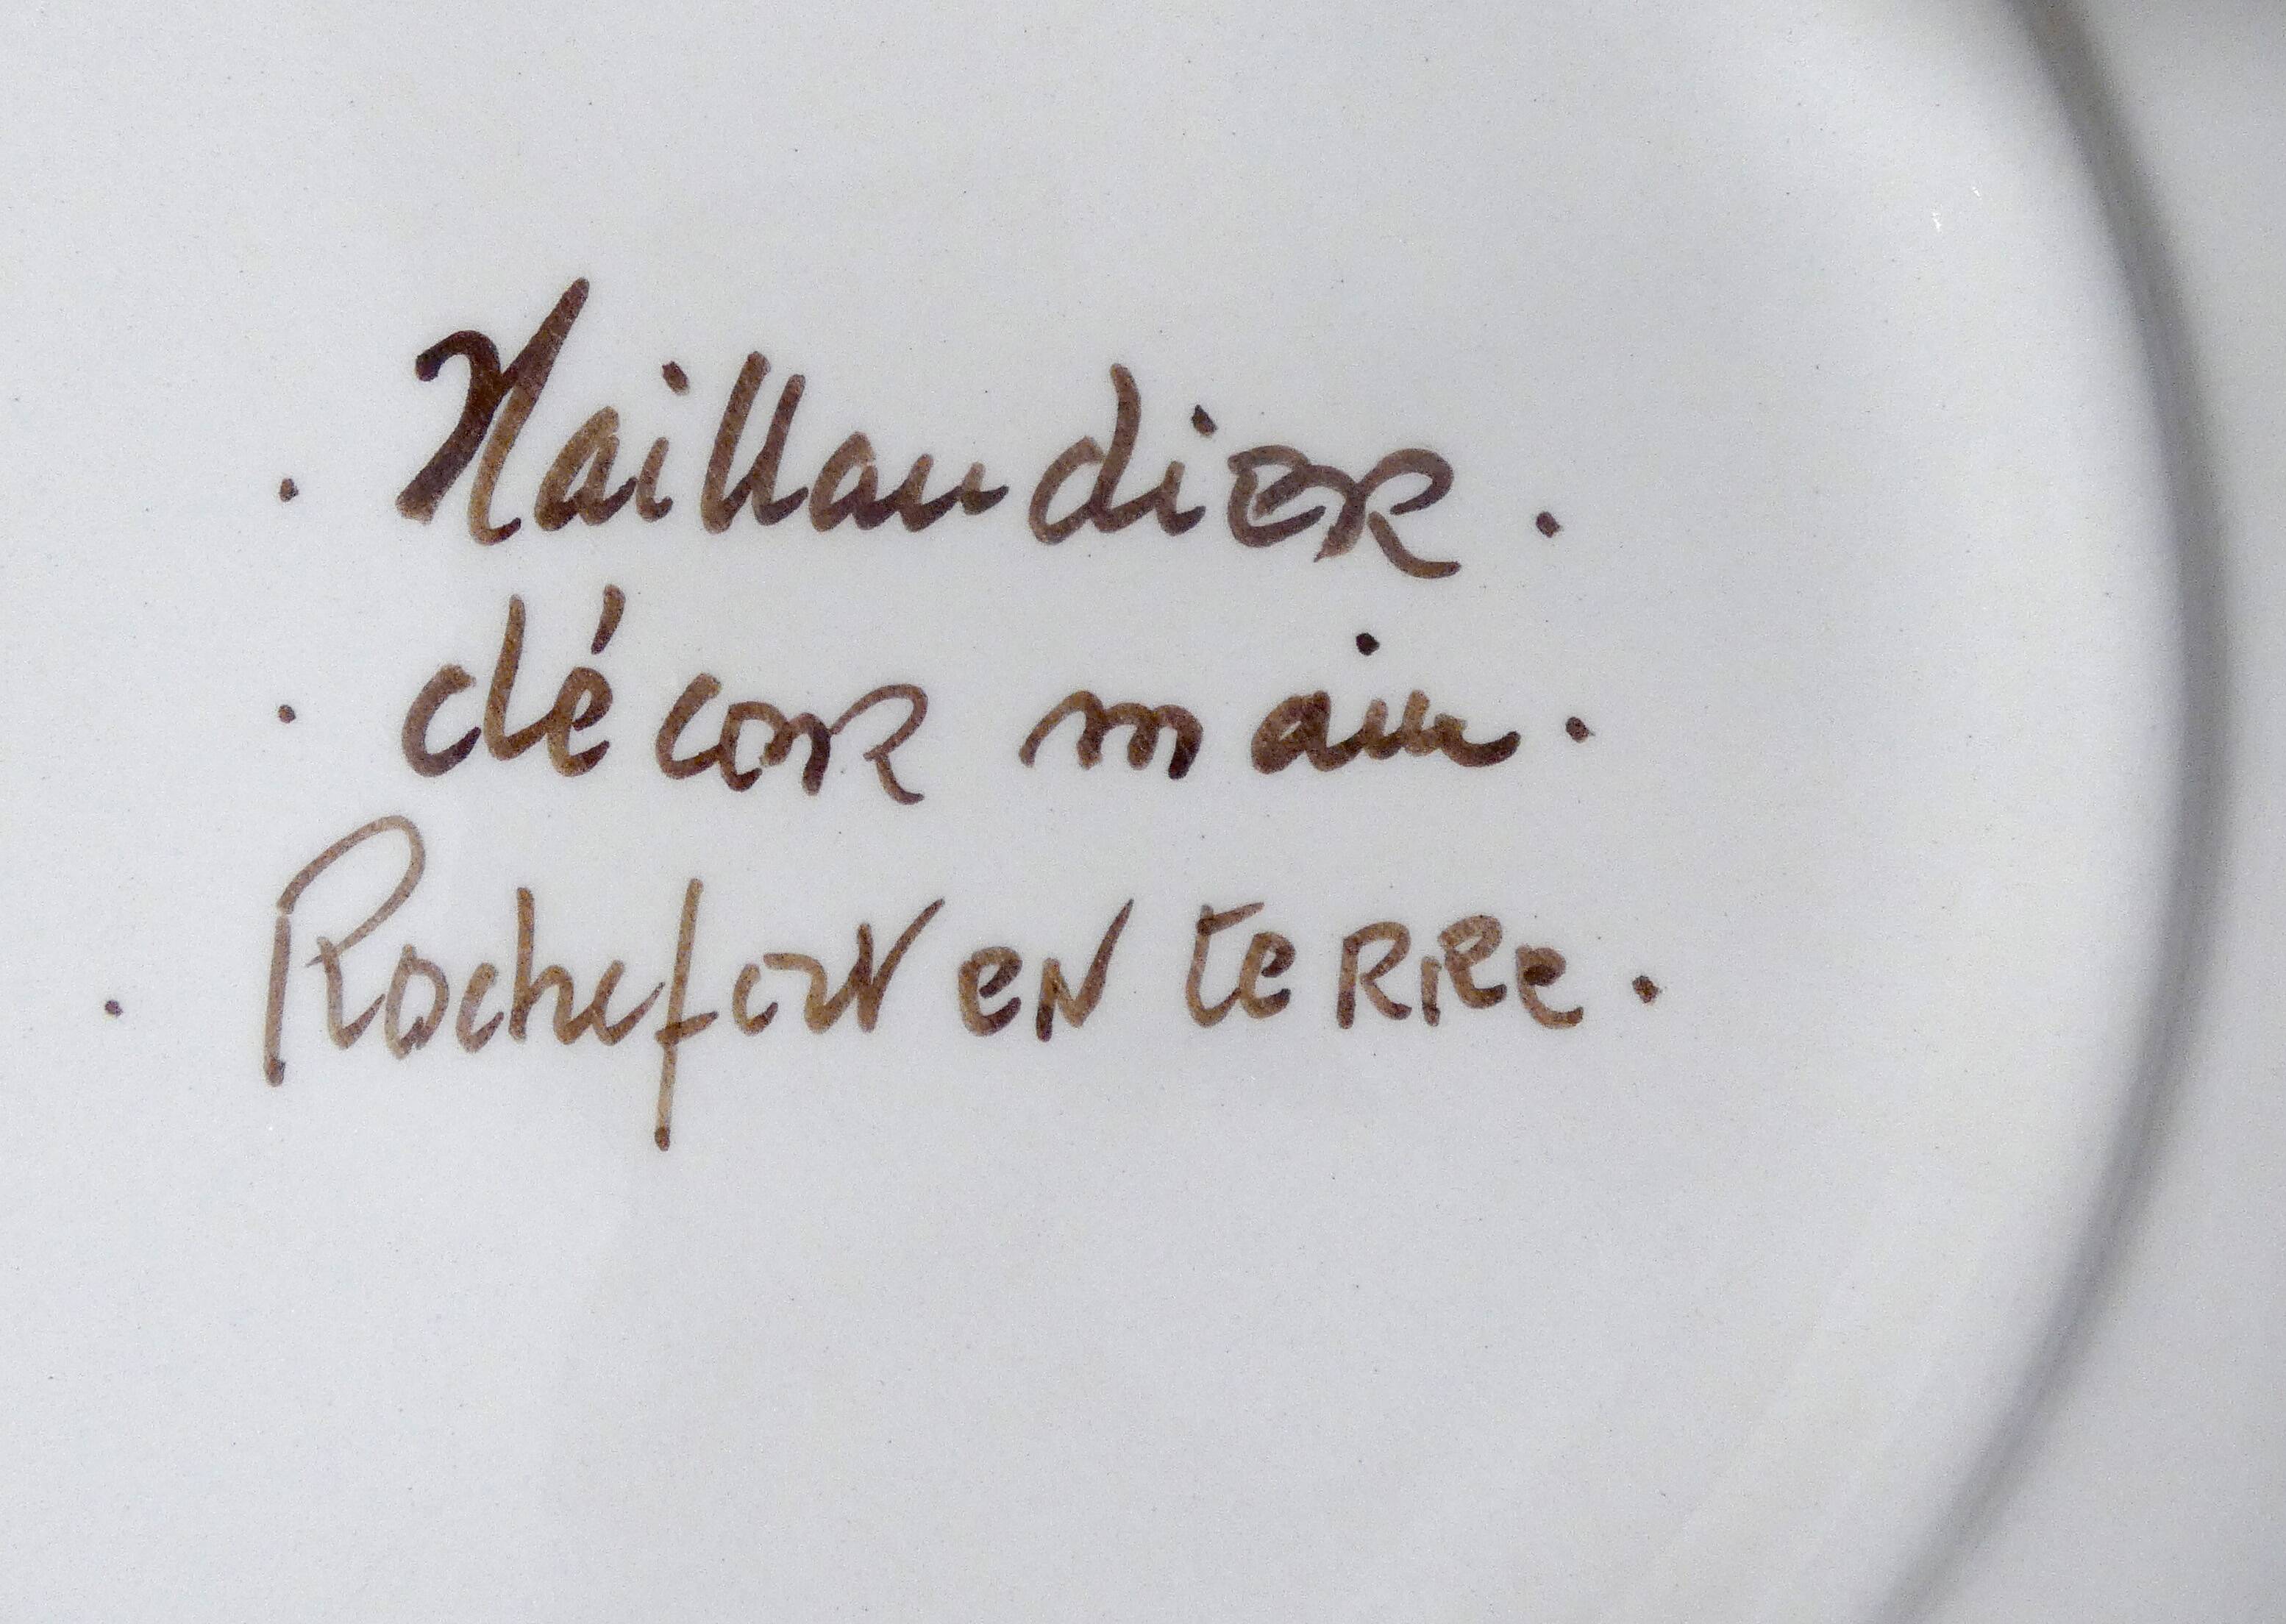 . Naillaudier .
. décor main .
. Rochefort en terre .